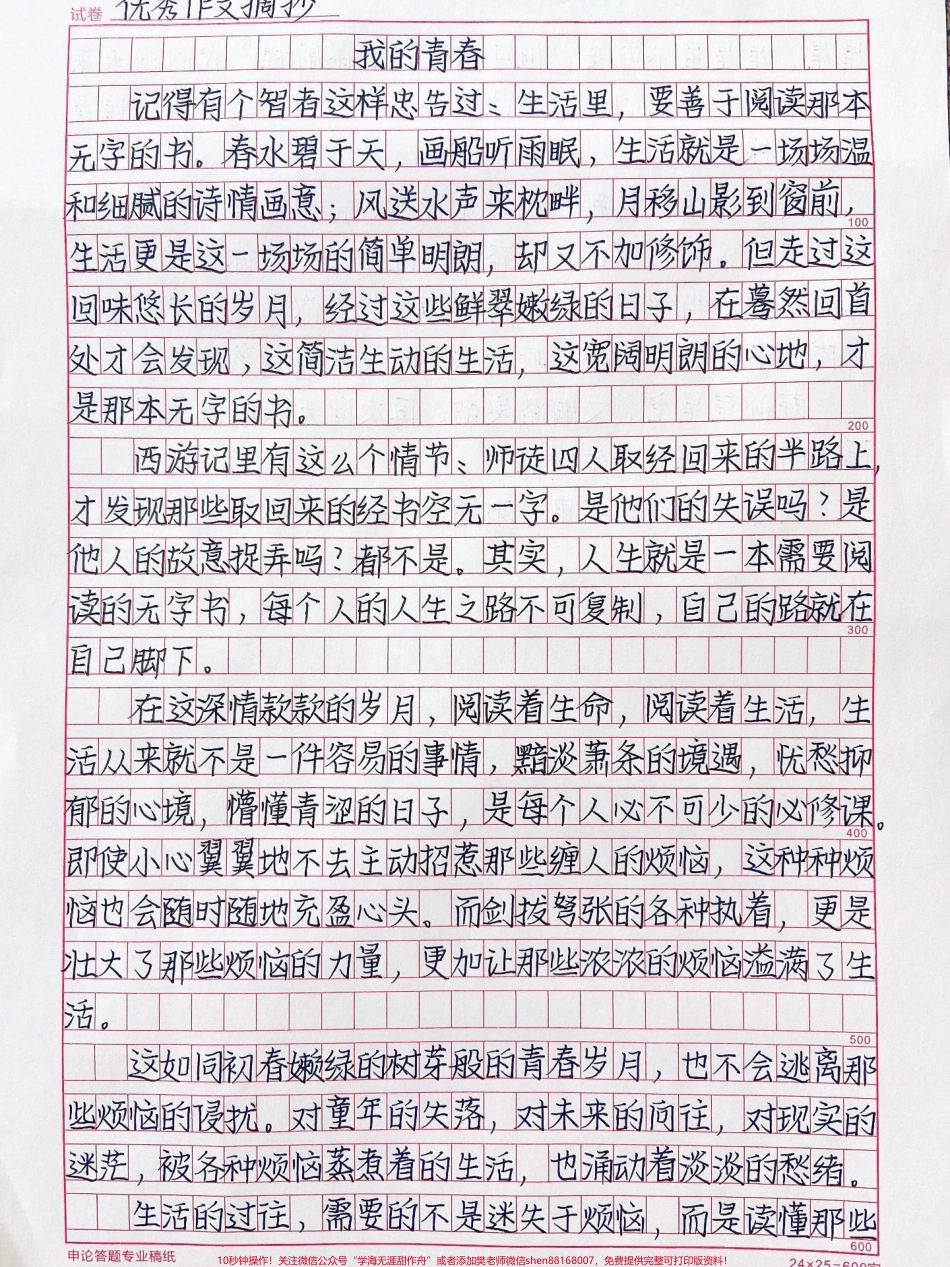 试卷 优秀作文摘抄
我的青春
记得有个智者这样忠告过:生活里，要善于阅读那本
无字的书。春水碧于天，画船听雨眠，生活就是一场场温
和细腻的诗情画意；风送水声来枕畔，月移山影到窗前，
100
生活更是这一场场的简单明朗，却又不加修饰。但走过这
回味悠长的岁月，经过这些鲜翠嫩绿的日子，在蓦然回首
处才会发现，这简洁生动的生活，这宽阔明朗的心地，才
是那本无字的书。
200
西游记里有这么个情节:师徒四人取经回来的半路上，
才发现那些取回来的经书空无一字。是他们的失误吗？是
他人的故意捉弄吗？都不是。其实，人生就是一本需要阅
读的无字书，每个人的人生之路不可复制，自己的路就在
300
自己脚下。
在这深情款款的岁月，阅读着生命，阅读着生活，生
活从来就不是一件容易的事情，黯淡萧条的境遇，忧愁抑
郁的心境，懵懂青涩的日子，是每个人必不可少的必修课。
400
即使小心翼翼地不去主动招惹那些缠人的烦恼，这种种烦
恼也会随时随地充盈心头。而剑拔弩张的各种执着，更是
壮大了那些烦恼的力量，更加让那些浓浓的烦恼溢满了生
活。
500
这如同初春嫩绿的树芽般的青春岁月，也不会逃离那
些烦恼的侵扰。对童年的失落，对未来的向往，对现实的
迷茫，被各种烦恼蒸煮着的生活，也涌动着淡淡的愁绪。
生活的过往，需要的不是迷失于烦恼，而是读懂那些
600
申论答题专业稿纸
10秒钟操作！关注微信公众号“学海无涯甜作舟”或者添加樊老师微信shen88168007，免费提供完整可打印版资料！
24×25=600字